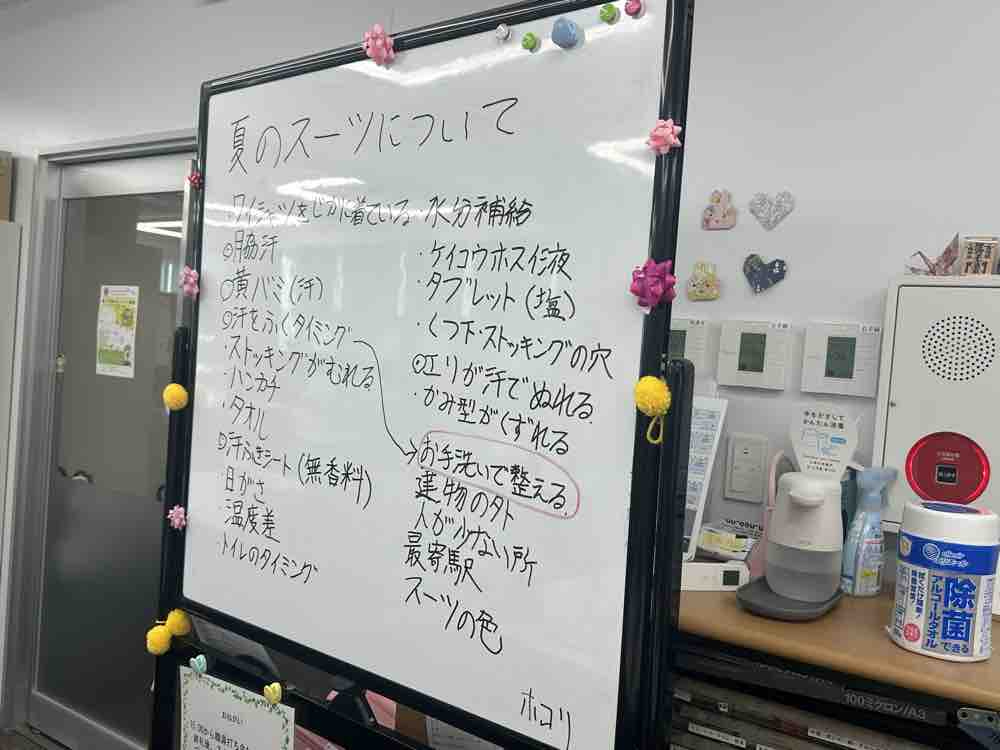 夏のスーツについて
・ワイシャツをじかに着ている
◎脇汗
○黄バミ(汗)
◎汗をふくタイミング
・ストッキングがむれる
・ハンカチ
・タオル
◎汗ふきシート(無香料)
・日がさ
・温度差
・トイレのタイミング
・水分補給
・ケイコウホスイ液
・タブレット(塩)
・くつ下・ストッキングの穴
◎エリが汗でぬれる
・かみ型がくずれる
お手洗いで整える。
建物の外
人が少ない所
最寄駅
スーツの色
ホコリ
おねがい
手をかざして
かんたん消毒
elleair
エリエール
除菌
できる
アルコールタオル
100ミクロン/A3